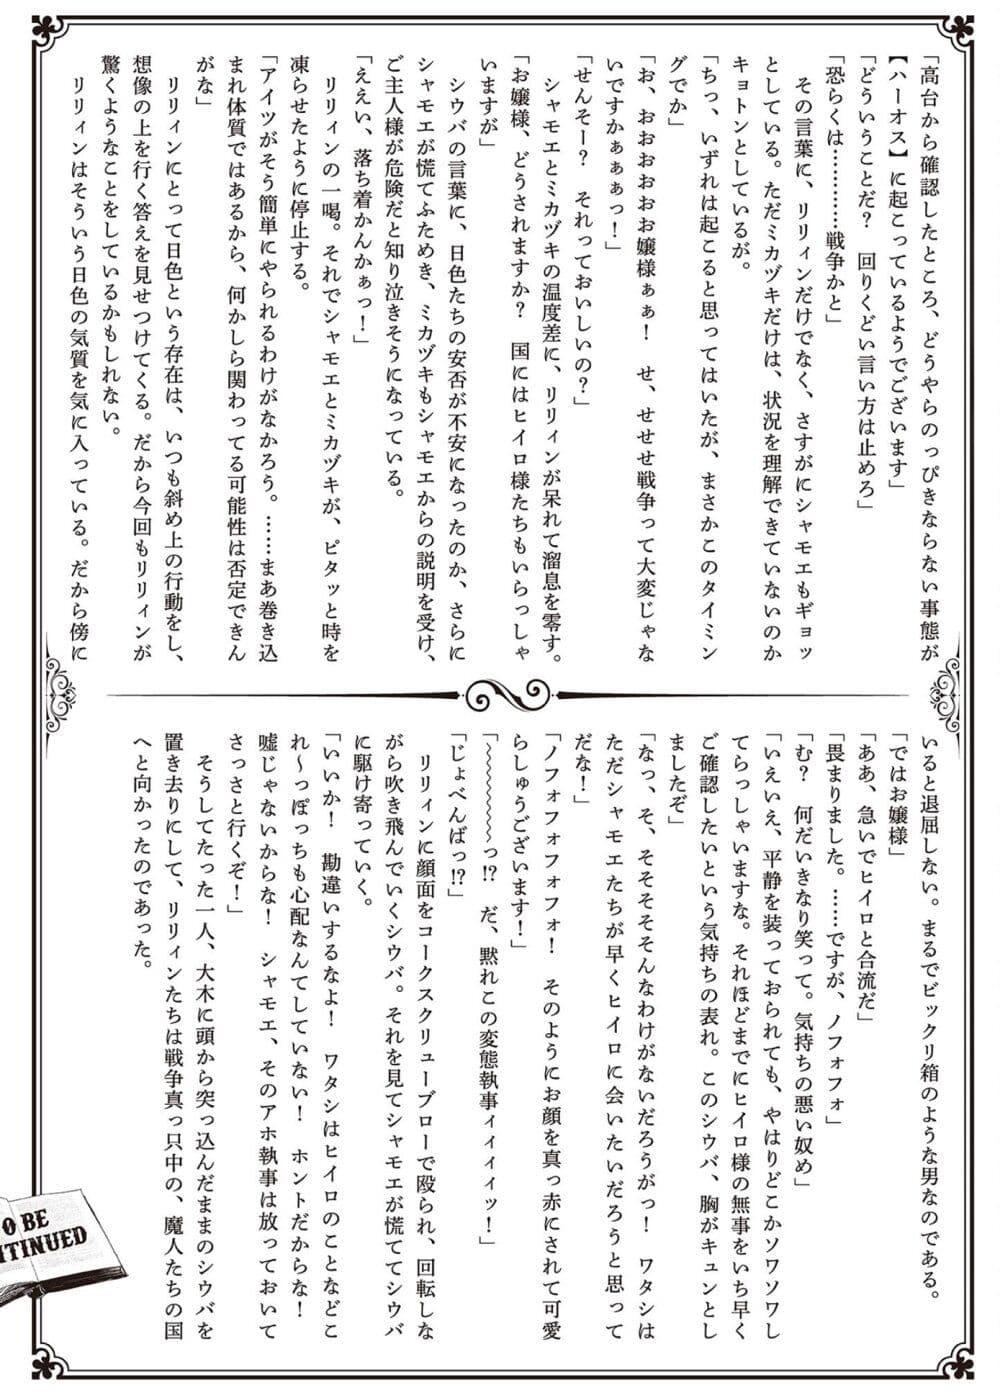 「高台から確認したところ、どうやらのっぴきならない事態が
【ハーオス】に起こっているようでございます」
「どういうことだ？　回りくどい言い方は止めろ」
「恐らくは…………戦争かと」
　その言葉に、リリィンだけでなく、さすがにシャモエもギョッ
としている。ただミカヅキだけは、状況を理解できていないのか
キョトンとしているが。
「ちっ、いずれは起こると思ってはいたが、まさかこのタイミン
グでか」
「お、おおおおおお嬢様ぁぁ！　せ、せせせ戦争って大変じゃな
いですかぁぁぁっ！」
「せんそー？　それっておいしいの？」
　シャモエとミカヅキの温度差に、リリィンが呆れて溜息を零す。
「お嬢様、どうされますか？　国にはヒイロ様たちもいらっしゃ
いますが」
　シウバの言葉に、日色たちの安否が不安になったのか、さらに
シャモエが慌てふためき、ミカヅキもシャモエからの説明を受け、
ご主人様が危険だと知り泣きそうになっている。
「ええい、落ち着かんかぁっ！」
　リリィンの一喝。それでシャモエとミカヅキが、ピタッと時を
凍らせたように停止する。
「アイツがそう簡単にやられるわけがなかろう。……まあ巻き込
まれ体質ではあるから、何かしら関わってる可能性は否定できん
がな」
　リリィンにとって日色という存在は、いつも斜め上の行動をし、
想像の上を行く答えを見せつけてくる。だから今回もリリィンが
驚くようなことをしているかもしれない。
　リリィンはそういう日色の気質を気に入っている。だから傍に
いると退屈しない。まるでビックリ箱のような男なのである。
「ではお嬢様」
「ああ、急いでヒイロと合流だ」
「畏まりました。……ですが、ノフォフォ」
「む？　何だいきなり笑って。気持ちの悪い奴め」
「いえいえ、平静を装っておられても、やはりどこかソワソワし
てらっしゃいますな。それほどまでにヒイロ様の無事をいち早く
ご確認したいという気持ちの表れ。このシウバ、胸がキュンとし
ましたぞ」
「なっ、そ、そそそそんなわけがないだろうがっ！　ワタシは
ただシャモエたちが早くヒイロに会いたいだろうと思って
だな！」
「ノフォフォフォフォ！　そのようにお顔を真っ赤にされて可愛
らしゅうございます！」
「～～～～～～っ!?　だ、黙れこの変態執事ィィィィッ！」
「じょべんばっ!?」
　リリィンに顔面をコークスクリューブローで殴られ、回転しな
がら吹き飛んでいくシウバ。それを見てシャモエが慌ててシウバ
に駆け寄っていく。
「いいか！　勘違いするなよ！　ワタシはヒイロのことなどこ
れ～っぽっちも心配なんてしていない！　ホントだからな！
嘘じゃないからな！　シャモエ、そのアホ執事は放っておいて
さっさと行くぞ！」
　そうしてたった一人、大木に頭から突っ込んだままのシウバを
置き去りにして、リリィンたちは戦争真っ只中の、魔人たちの国
へと向かったのであった。
O BE
NTINUED